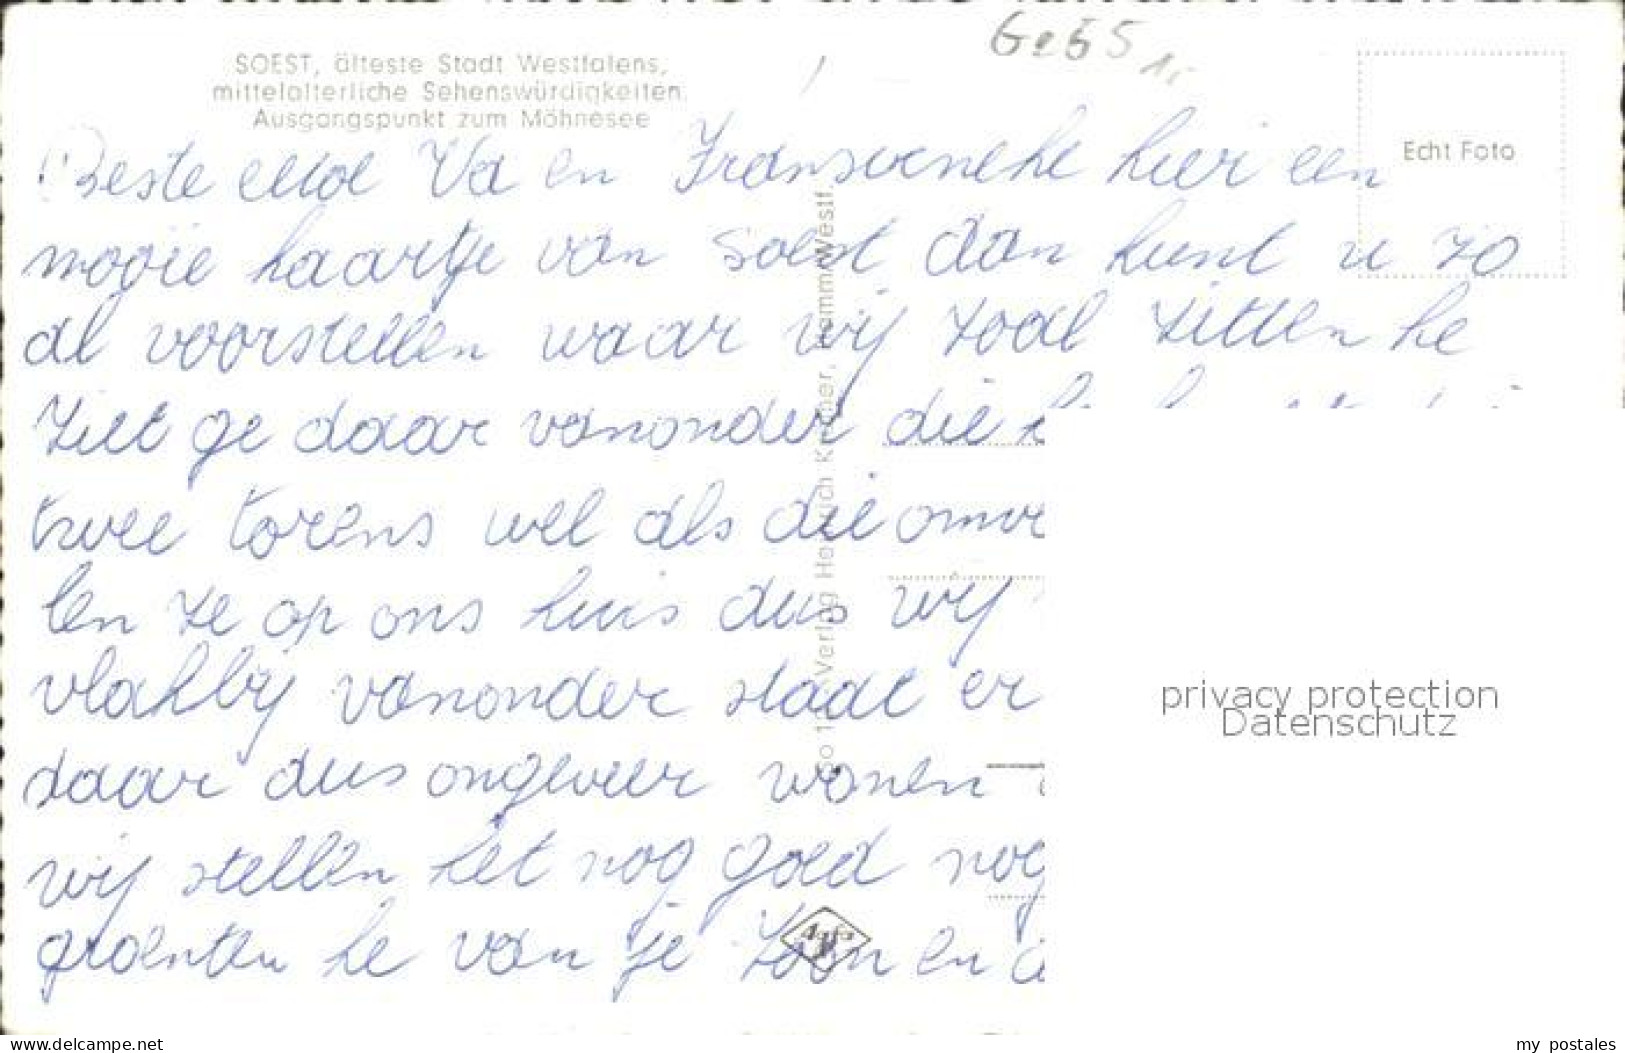 Ge 55
SOEST, älteste Stadt Westfalens,
mittelalterliche Sehenswürdigkeiten.
Ausgangspunkt zum Möhnesee
Echt Foto
Beste Va en hier een
mooie kaartje van Soest dan kunt u zo
al voorstellen waar wij zoal zitten he
ziet ge daar vanonder die
twee torens wel als die omve
len ze op ons huis dus wij
vlakbij vanonder staat er
daar dus ongeveer wonen
wij stellen het nog goed nog
groenten he van je zoon en
So 1 Verlag Heinrich Hamm/Westf.
Agfa
privacy protection
Datenschutz
delcampe.net
my_postales